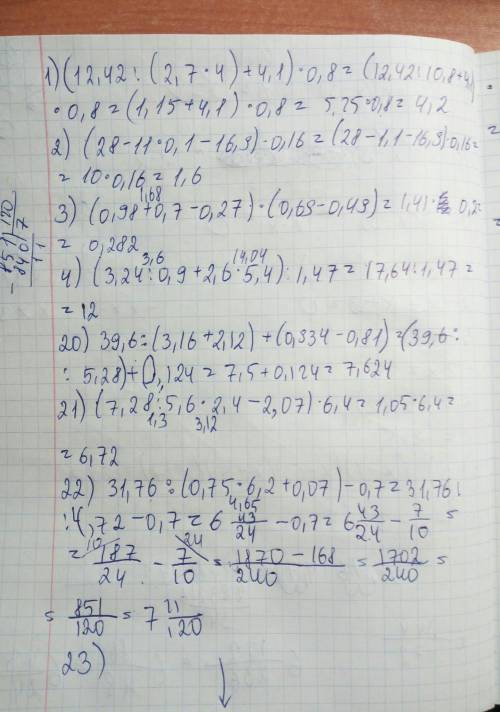 1) (12,42 : (2,7 · 4) + 4,1) · 0,8 = (12,42 : 10,8 + 4,1)
· 0,8 = (1,15 + 4,1) · 0,8 = 5,25 · 0,8 = 4,2
2) (28 - 11 · 0,1 - 16,9) · 0,16 = (28 - 1,1 - 16,9) · 0,16 =
= 10 · 0,16 = 1,6
1,68
3) (0,98 + 0,7 - 0,27) · (0,69 - 0,49) = 1,41 · 0,2 =
= 0,282
3,6 14,04
4) (3,24 : 0,9 + 2,6 · 5,4) : 1,47 = 17,64 : 1,47 =
= 12
20) 39,6 : (3,16 + 2,12) + (0,934 - 0,81) = (39,6 :
: 5,28) + 0,124 = 7,5 + 0,124 = 7,624
21) (7,28 : 5,6 · 2,4 - 2,07) · 6,4 = 1,05 · 6,4 =
1,3 3,12
= 6,72
22) 31,76 : (0,75 · 6,2 + 0,07) - 0,7 = 31,76 :
4,65
: 4,72 - 0,7 = 6 43/24 - 0,7 = 6 43/24 - 7/10 =
10 24
= 187/24 - 7/10 = 1870 - 168/240 = 1702/240 =
= 851/120 = 7 11/120
23)
851 120
840 7
11